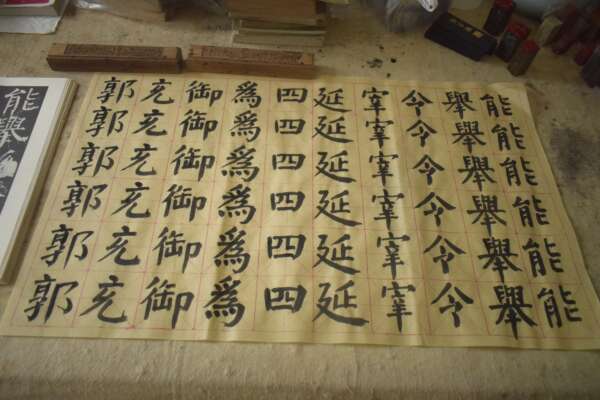 能能能能能能
舉舉舉舉舉舉
令令令令令令
宰宰宰宰宰宰
延延延延延延
四四四四四四
爲爲爲爲爲爲
御御御御御御
充充充充充充
郭郭郭郭郭郭
能舉